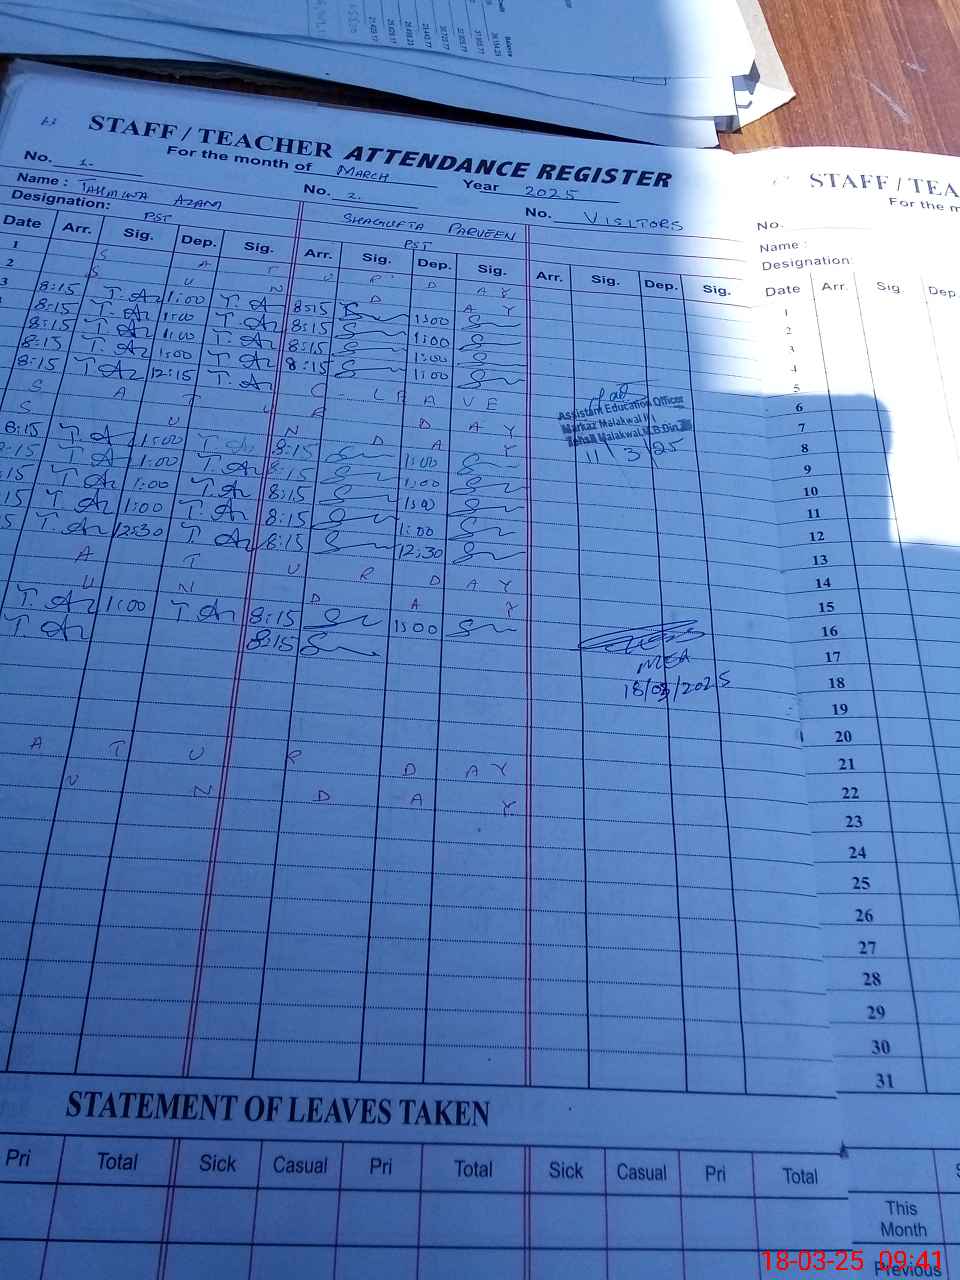 STAFF / TEACHER ATTENDANCE REGISTER
For the month of MARCH Year 2025
No. 1. No. 2. No. VISITORS
Name : TAHMINA AZAM SHAGUFTA PARVEEN
Designation: PST PST
Date Arr. Sig. Dep. Sig. Arr. Sig. Dep. Sig. Arr. Sig. Dep. Sig.
1 S A T U R D A Y
2 S U N D A Y
3 8:15 T. Az 1:00 T. A 8:15 1:00
8:15 T. Az 1:00 T. Az 8:15 1:00
8:15 T. Az 1:00 T. Az 8:15 1:00
8:15 T. Az 1:00 T. Az 8:15 1:00
8:15 T. Az 12:15 T. Az C - LEAVE
S A T U R D A Y
S U N D A Y
8:15 T. Az 1:00 T. Az 8:15 1:00
8:15 T. Az 1:00 T. Az 8:15 1:00
:15 T. Az 1:00 T. Az 8:15 1:00
:15 T. Az 1:00 T. Az 8:15 1:00
15 T. Az 12:30 T. Az 8:15 12:30
A T U R D A Y
U N D A Y
T. Az 1:00 T. Az 8:15 1:00
T. Az 8:15
A T U R D A Y
U N D A Y
Assistant Education Officer
Markaz Malakwal
Tehsil Malakwal M.B.Din
11/3/25
MEA
18/03/2025
STATEMENT OF LEAVES TAKEN
Pri Total Sick Casual Pri Total Sick Casual Pri Total
STAFF / TEA
For the m
No.
Name :
Designation:
Date Arr. Sig. Dep.
1
2
3
4
5
6
7
8
9
10
11
12
13
14
15
16
17
18
19
20
21
22
23
24
25
26
27
28
29
30
31
This
Month
Previous
18-03-25 09:41